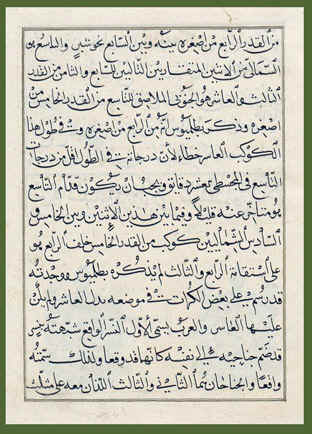 من القدر الرابع من اصغره بينه وبين السابع نحو شبرين والتاسع هو
الشمالى من الاثنين المتقاربين التاليين للسابع والثامن من القدر
الثالث والعاشر هو الجنوبى الملاصق للتاسع من القدر الخامس من
اصغره وذكر بطليموس انه من الرابع من اصغره وفى طول هذا
الكوكب العاشر خطاء لان درجاته فى الطول اقل من درجات
التاسع فى المجسطى بعشرة دقايق ويجب ان يكون قدام التاسع
وهو متاخر عنه قليلا وفيما بين هذين الاثنين وبين الخامس و
السادس الشماليين كوكب من القدر الخامس خلف الرابع هو
على استقامة الرابع والثالث لم يذكره بطليموس ووجدته
قد رسم على بعض الكرات فى موضعه بدل العاشر ولم يذكر
عليها العاشر والعرب يسمى الاول النسر الواقع شبهته بنسر
قد ضم جناحيه الى نفسه كانها قد وقعا ولذلك سمته
واقعا والجناحان هما الثانى والثالث اللذان معه على مثلث